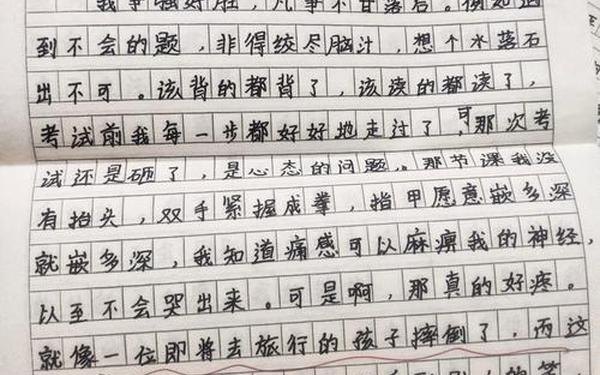 我争强好胜，凡事不甘落后。例如遇
到不会的题，非得绞尽脑汁，想个水落石
出不可。该背的都背了，该读的都读了，
考试前我每一步都好好地走过了，可那次考
试还是砸了，是心态的问题。那节课我没
有抬头，双手紧握成拳，指甲愿意嵌多深
就嵌多深，我知道痛感可以麻痹我的神经，
以至不会哭出来。可是啊，那真的好疼。
就像一位即将去旅行的孩子摔倒了，而这